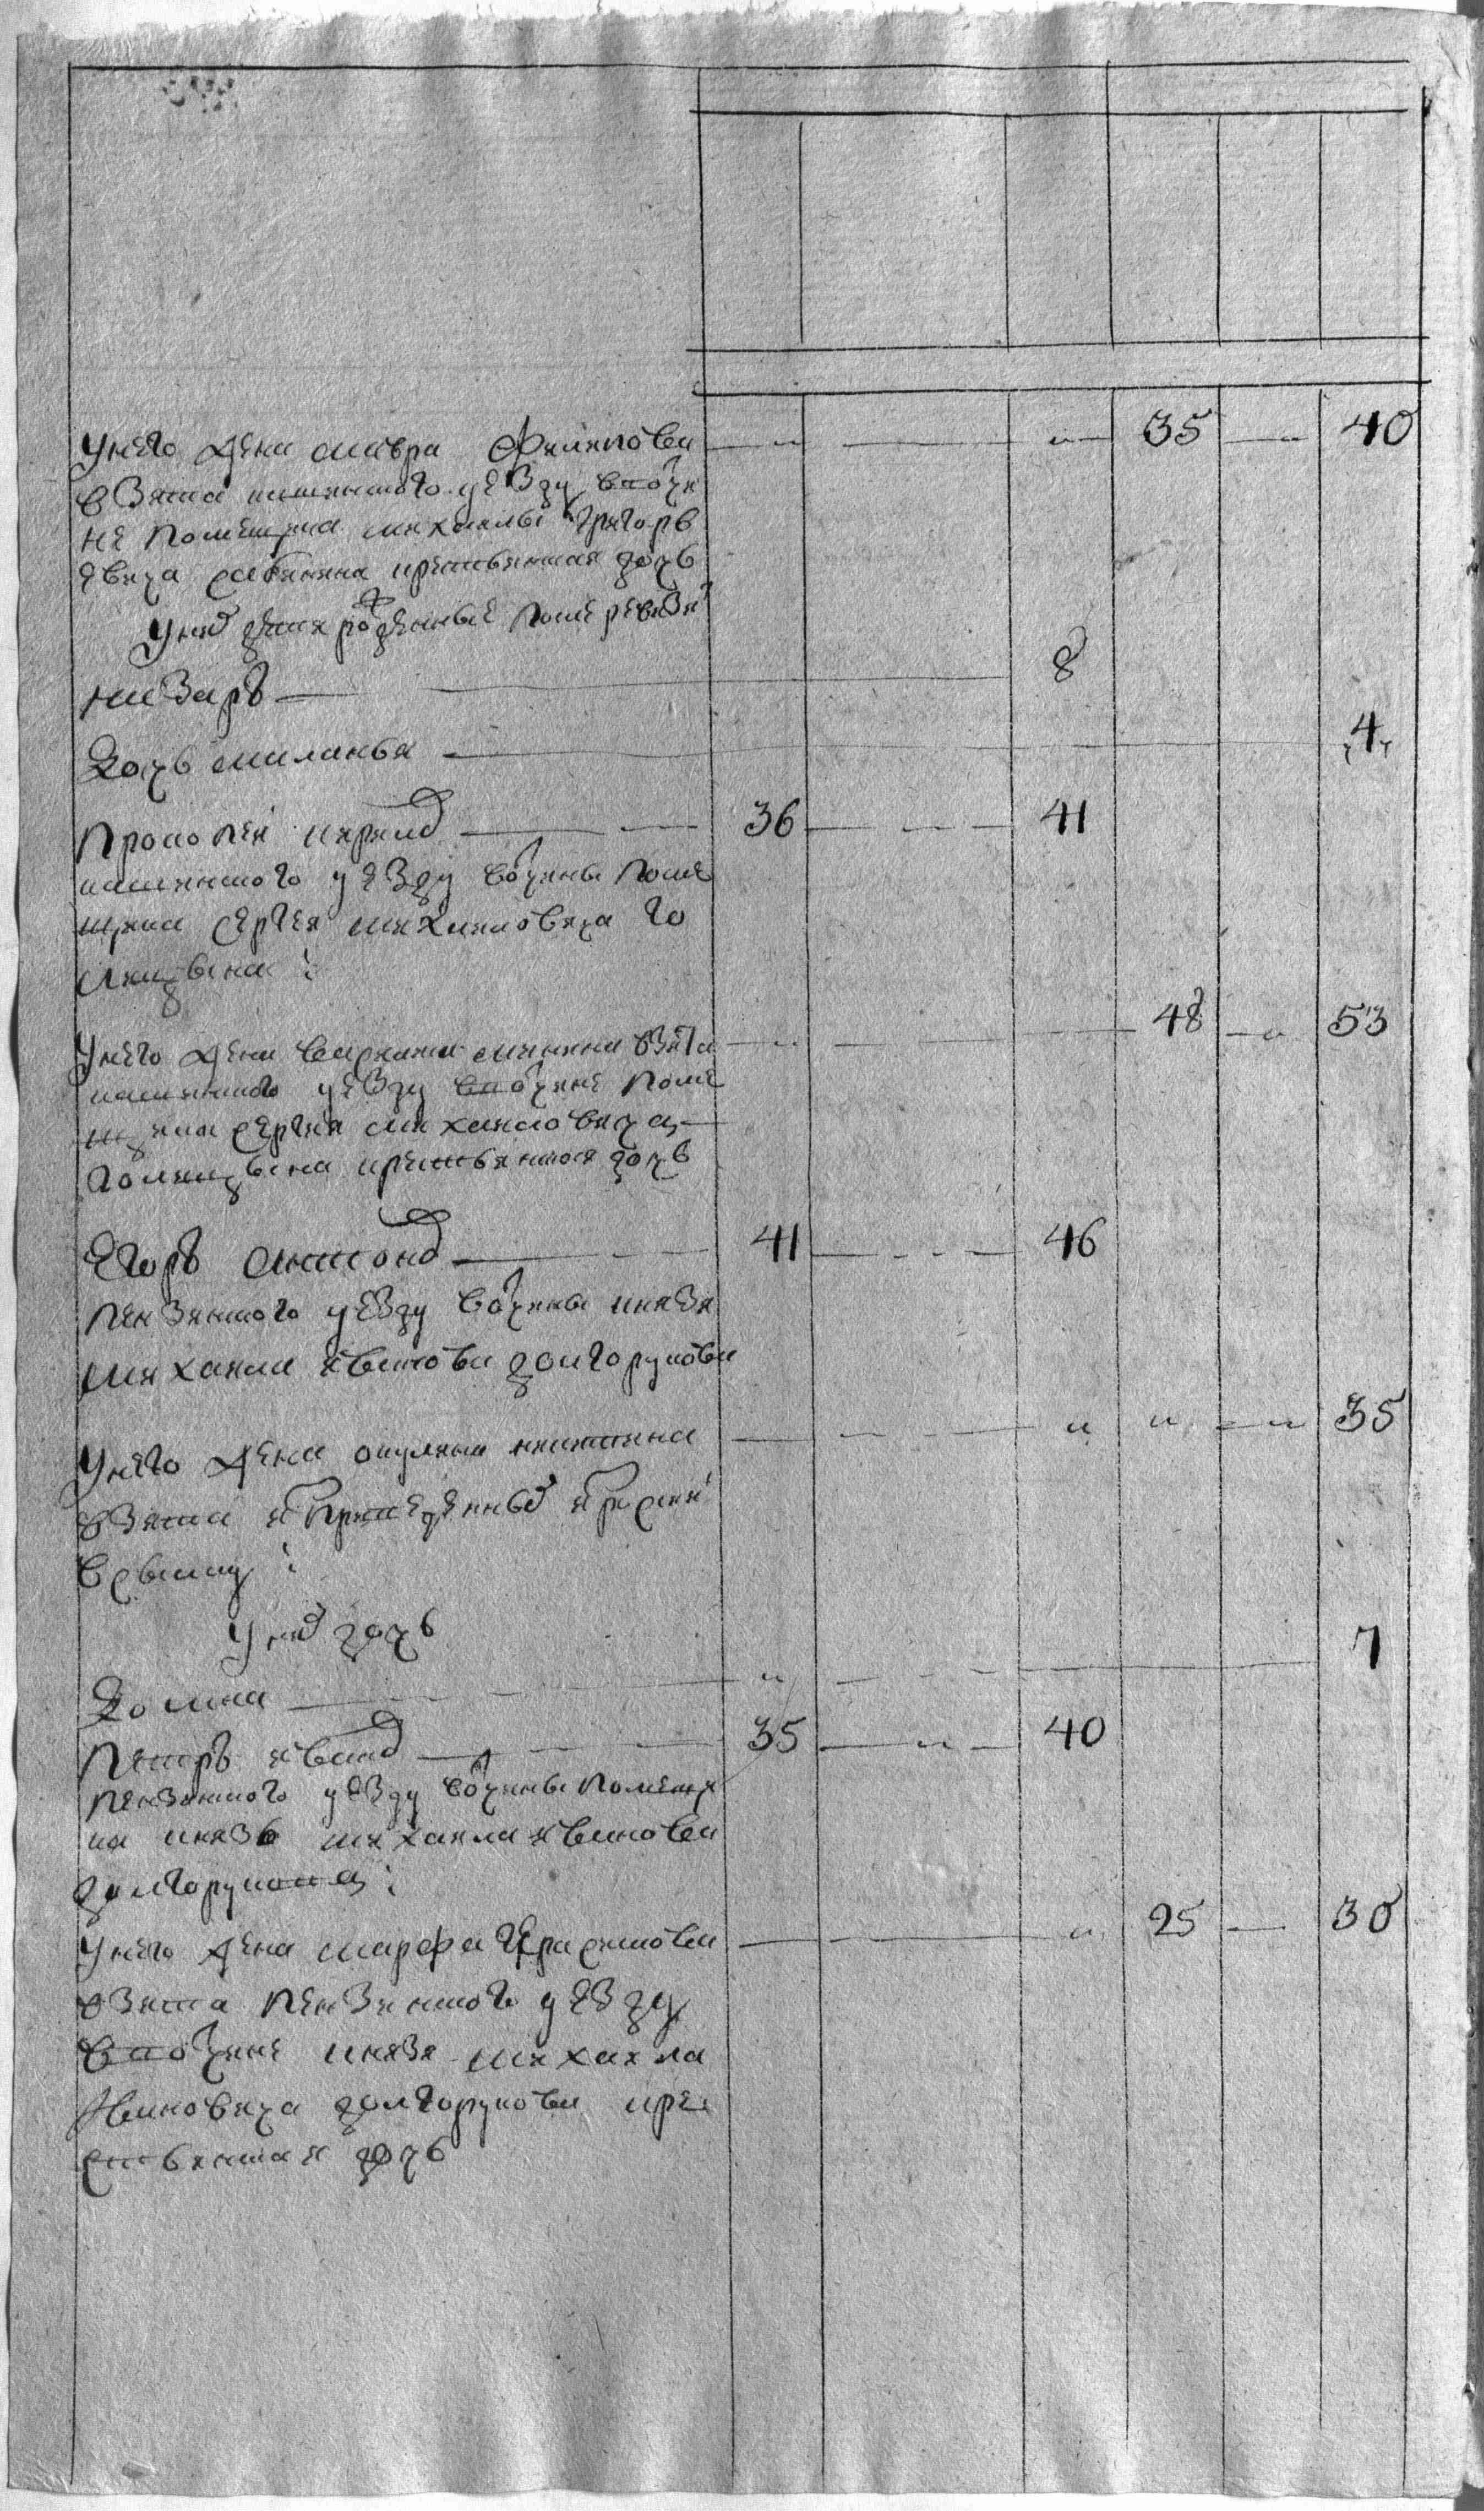 У него жена мавра Филипова 35 40
взята того уезду вотчи
не помещика михаилы григорь
евича крестьянская дочь
У них дети рожденные после ревизи
назаръ 8
Дочь миланья 4
Прокофей карпов 36 41
того уезду вотчины поме
щика сергея михаиловича го
лицына
У него жена василиса взята 48 53
того уезду в вотчине поме
щика сергея михаиловича
голицына крестьянская дочь
Егоръ антонов 41 46
пензенского уезду вотчины князя
михаила иванова долгорукова
У него жена акулина никитина 35
взята
У них дочь
Домна 7
Петръ иванов 35 40
пензенского уезду вотчины помещи
ка князь михаила иванова
долгорукова
У него жена марфа герасимова 25 30
взята пензенского уезду
в вотчине князя михаила
ивановича долгорукова кре
стьянская дочь